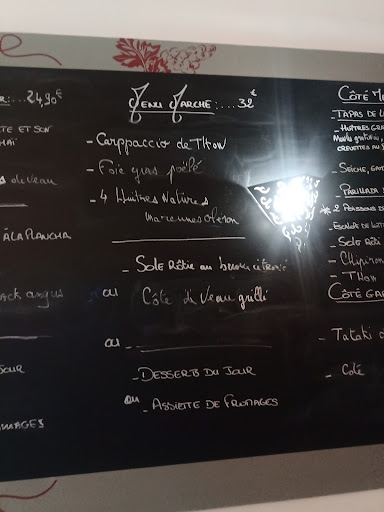 24,90€
TE ET SON
THAÏ
s de veau
À LA PLANCHA
ack angus
JOUR
OMAGES
MENU MARCHÉ :....32€
- Carppaccio de THon
- Foie gras poêlé
- 4 Huîtres Natures
marennes oléron
- Sole Rôtie au beurre citronné
ou Côte de Veau grillé
ou -
- DESSERTS DU JOUR
ou - ASSIETTE DE FROMAGES
CÔTÉ
- TAPAS DE L
- HUITRES GRA
CREVETTES AU
- SEICHE,
PARILLADA
* 2 POISSONS D
- SOLE RÔTI
- Chipiron
- THon
CÔTÉ GA
- Tataki
- Côte